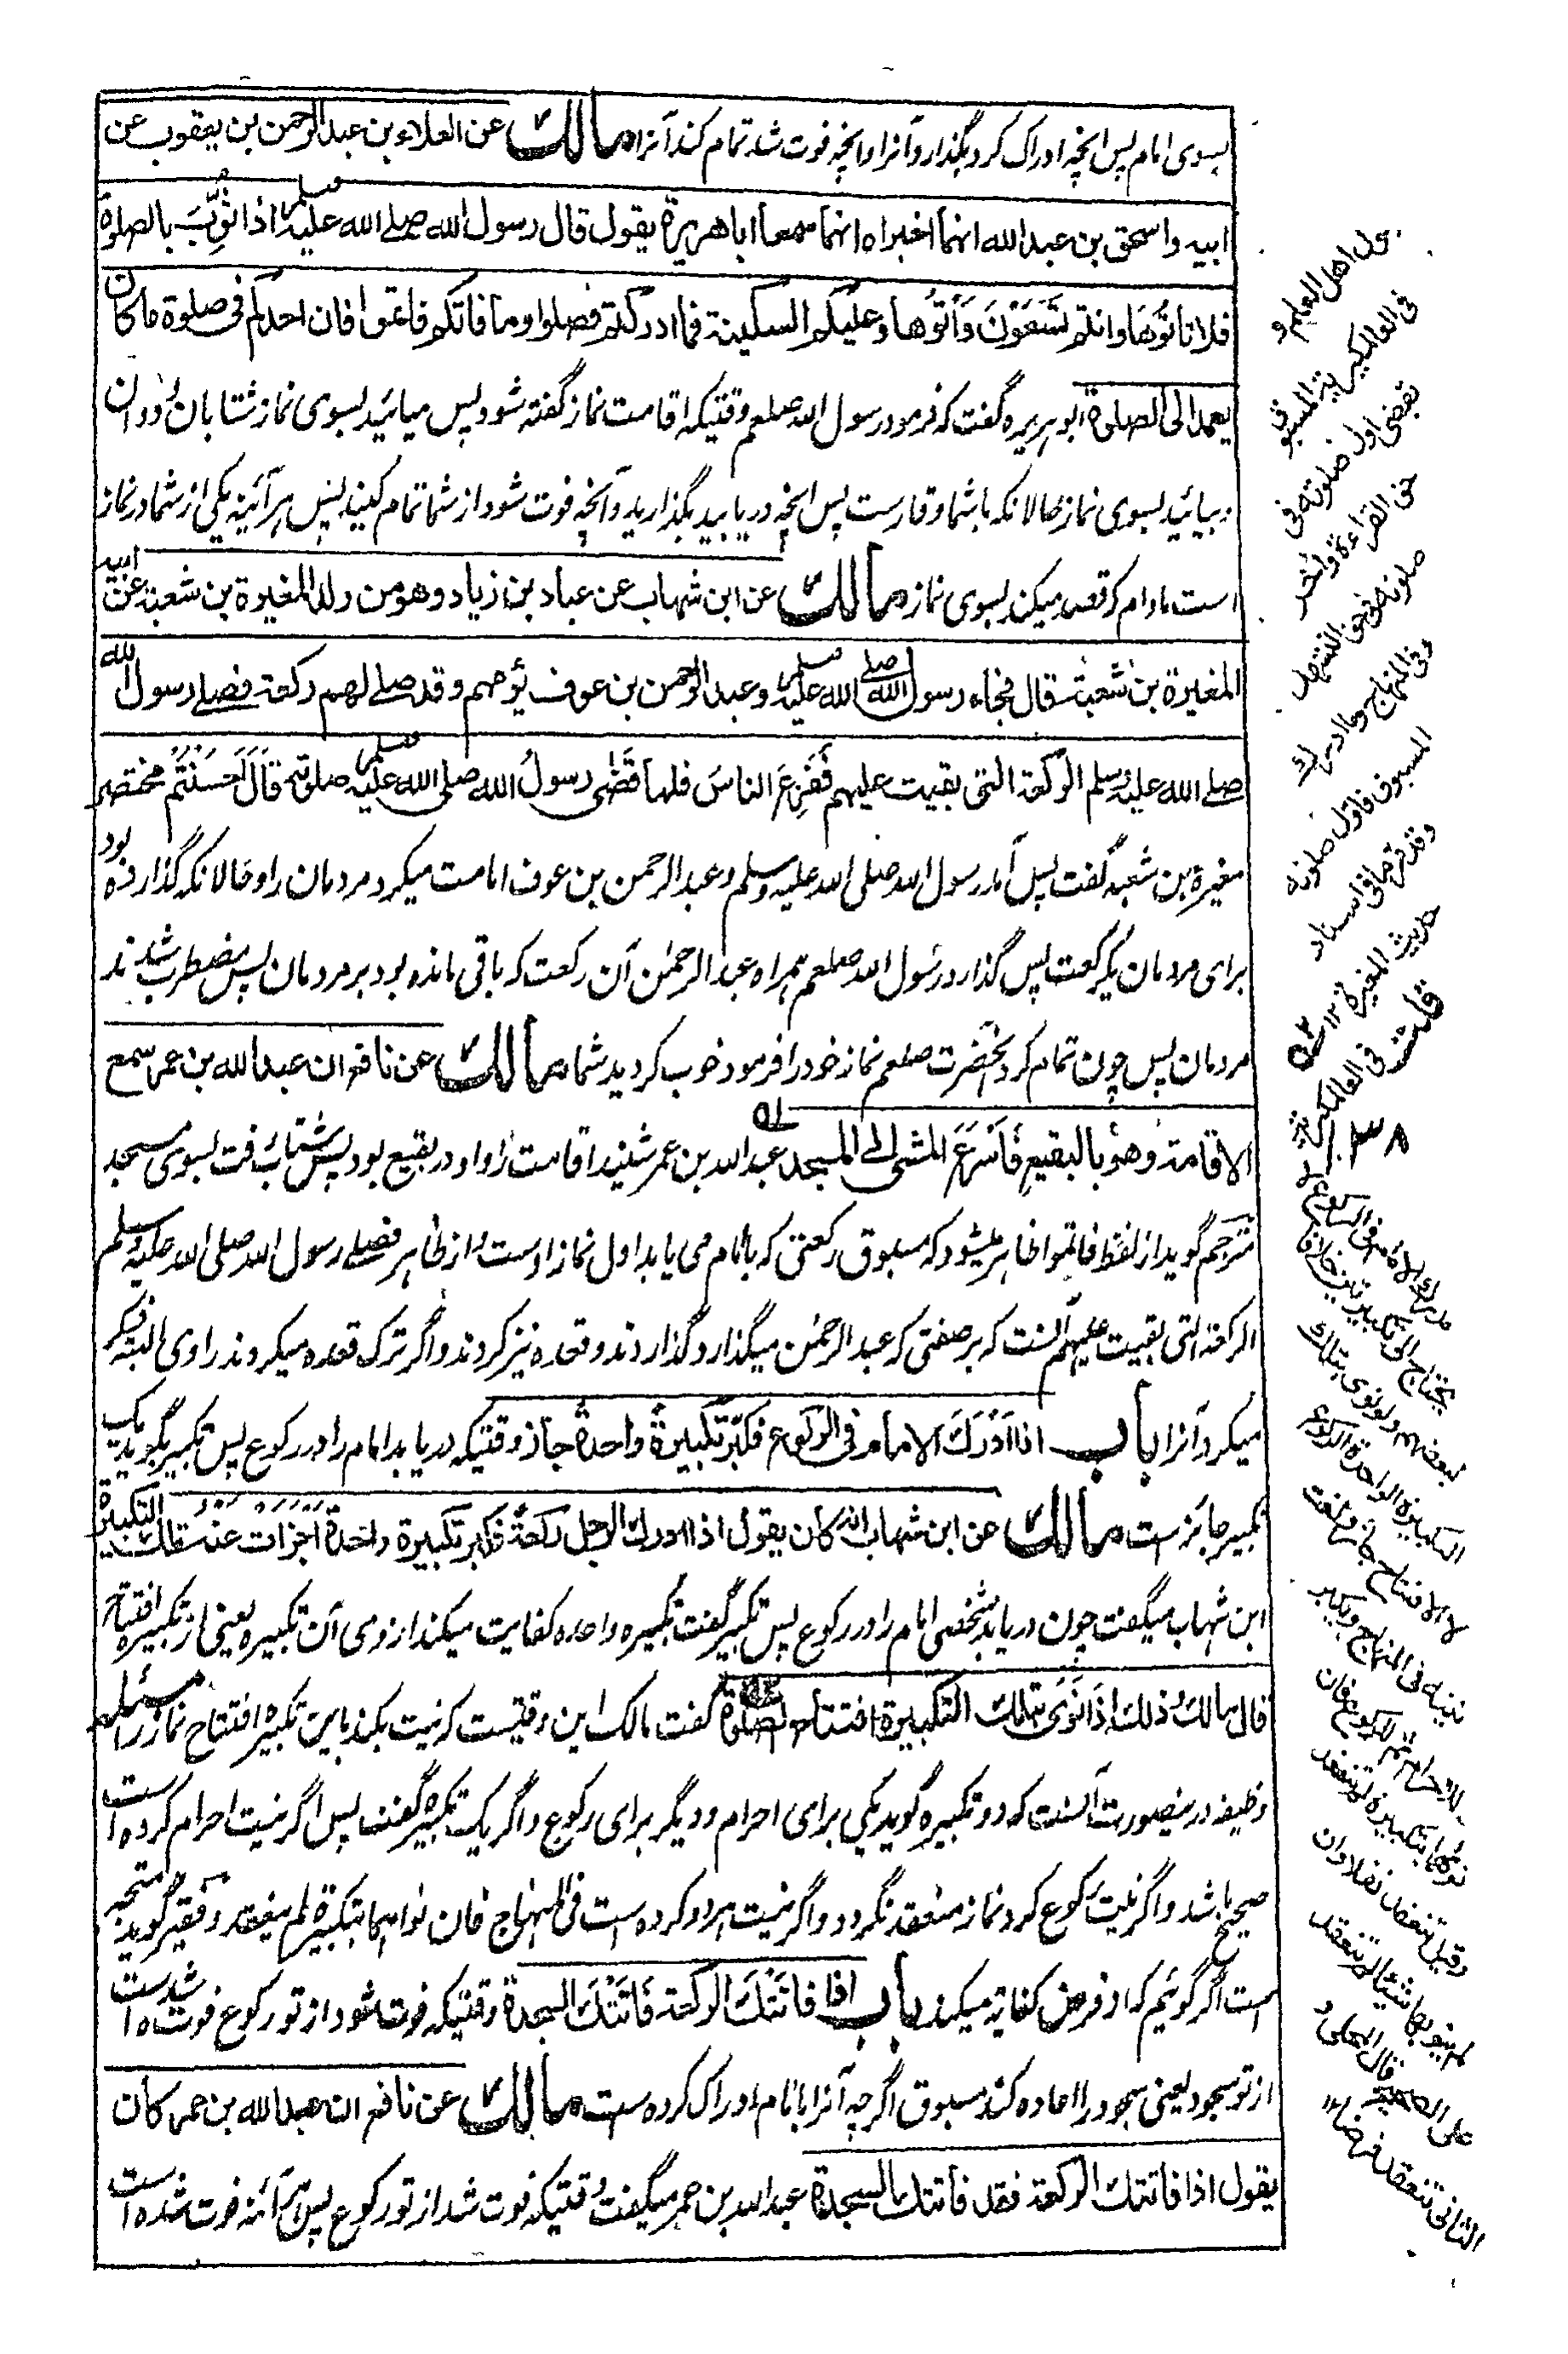 بسوی امام پس انچه ادراک کرد بگذارد آنرا و انچه فوت شد تمام کند آنرا مالك عن العلاء بن عبد الرحمن بن يعقوب عن
ابيه واسحق بن عبد الله انهما اخبراه انهما سمعا ابا هريرة يقول قال رسول الله صلے الله عليه وسلم اذا ثُوِّبَ بالصلوة
فلا تاتُوْهَا وانتم تَسْعَوْنَ وَأْتُوْها وعليكم السكينة فما ادركتم فصلوا وما فاتكم فاتموا فان احدكم فى صلوة ما كان
يعمد الى الصلوة ابوہریرہ گفت کہ فرمود رسول اللہ صلعم وقتیکہ اقامت نماز گفتہ شود پس میائید بسوی نماز شتابان و دوان
و بیائید بسوی نماز حالانکہ با شما وقارست پس انچہ دریابید بگذارید و آنچہ فوت شود از شما تمام کنید پس ہر آئینہ یکی از شما در نماز
است مادام کہ قصد میکند بسوی نماز مالك عن ابن شهاب عن عباد بن زياد وهو من ولد المغيرة بن شعبة عن ابيه
المغيرة بن شعبة قال فجاء رسول الله صلے الله عليه وسلم وعبد الرحمن بن عوف يؤمهم وقد صلے لهم ركعة فصلے رسول الله
صلے الله عليه وسلم الركعة التى بقيت عليهم فَفَزِعَ الناسُ فلما قَضٰى رسولُ الله صلى الله عليه وسلم صلوته قَالَ اَحْسَنْتُمْ مختصر
مغیرہ بن شعبہ گفت پس آمد رسول اللہ صلی اللہ علیہ وسلم و عبد الرحمن بن عوف امامت میکرد مردمان را و حالانکہ گذاردہ بود
برای مردمان یکرکعت پس گذارد رسول اللہ صلعم ہمراہ عبد الرحمن آن رکعت کہ باقی ماندہ بود بر مردمان پس مضطرب شدند
مردمان پس چون تمام کرد آنحضرت صلعم نماز خود را فرمود خوب کردید شما مالك عن نافع ان عبد الله بن عمر سمع
الاقامة وهو بالبقيع فَأَسْرَعَ المشى الى المسجد عبد اللہ بن عمر شنید اقامت را و او در بقیع بود پس شتاب رفت بسوی مسجد
مترجم گوید از لفظ فاتموا ظاہر میشود کہ مسبوق رکعتی کہ با امام می یابد اول نماز اوست و از ظاہر فصلے رسول اللہ صلی اللہ علیہ وسلم
الرکعة التی بقیت علیہم آنست کہ بر صفتی کہ عبد الرحمن میگذارد گذاردند و قعدہ نیز کردند و اگر ترک قعدہ میکردند راوی البتہ ذکر
میکرد آنرا باب اذا اَدْرَكَ الامام فى الركوع فكبّر تكبيرةً واحدةً جاز وقتیکہ دریابد امام را در رکوع پس تکبیر بگوید یک
تکبیر جائز ست مالك عن ابن شهاب انه كان يقول اذا ادرك الرجل ركعة فكبر تكبيرة واحدة اَجْزَأت عنه تلك التكبيرة
ابن شہاب میگفت چون دریابد شخصی امام را در رکوع پس تکبیر گفت تکبیرہ واحدہ کفایت میکند از وی آن تکبیرہ یعنی از تکبیرہ افتتاح
قال مالك وذلك اِذا نَوٰى بتلك التكبيرة افتتاح الصلوة گفت مالک این وقتیست کہ نیت بکند باین تکبیرہ افتتاح نماز را مسئلہ
وظیفہ درینصورت آنست کہ دو تکبیرہ گوید یکی برای احرام و دیگر برای رکوع و اگر یک تکبیرہ گفت پس اگر نیت احرام کردہ است
صحیح باشد و اگر نیت رکوع کرد نماز منعقد نگردد و اگر نیت ہر دو کردہ است فی المنہاج فان نواہما بتکبیرة لم ینعقد و فقیر گوید متجہ
است اگر گوئیم کہ از فرض کفایہ میکند باب اذا فَاتَتْكَ الركعة فَاتَتْكَ السجدة وقتیکہ فوت شود از تو رکوع فوت شدہ است
از تو سجود یعنی سجود را اعادہ کند مسبوق اگرچہ آنرا با امام ادراک کردہ ست مالك عن نافع ان عبد الله بن عمر كان
يقول اذا فاتتك الركعة فقد فاتتك السجدة عبد اللہ بن عمر میگفت وقتیکہ فوت شد از تو رکوع پس ہر آئنہ فوت شدہ است
اهل العلم و
فى العالمگيرية المسبوق
يقضى اول صلوته فى
حق القراءة واٰخر
صلوته فى حق التشهد
وفى المنهاج وما ادرك
المسبوق فاول صلوته
حديث المغيرة ١٢
فى العالمگيرية
١٣٨
مدرك الامام فى الركوع لا
يحتاج الى تكبيرتين خلافا
لبعضهم ولو نوى بتلك
التكبيرة الواحدة الركوع
لا الافتتاح جاز ولغت
نيته فى المنهاج ويكبر
للاحرام ثم للركوع فان
نواهما بتكبيرة لم تنعقد
وقيل تنعقد نفلا وان
لم ينو بها شيئا لم تنعقد
على الصحيح قال المحلى و
الثانى تنعقد فرضا ١٢